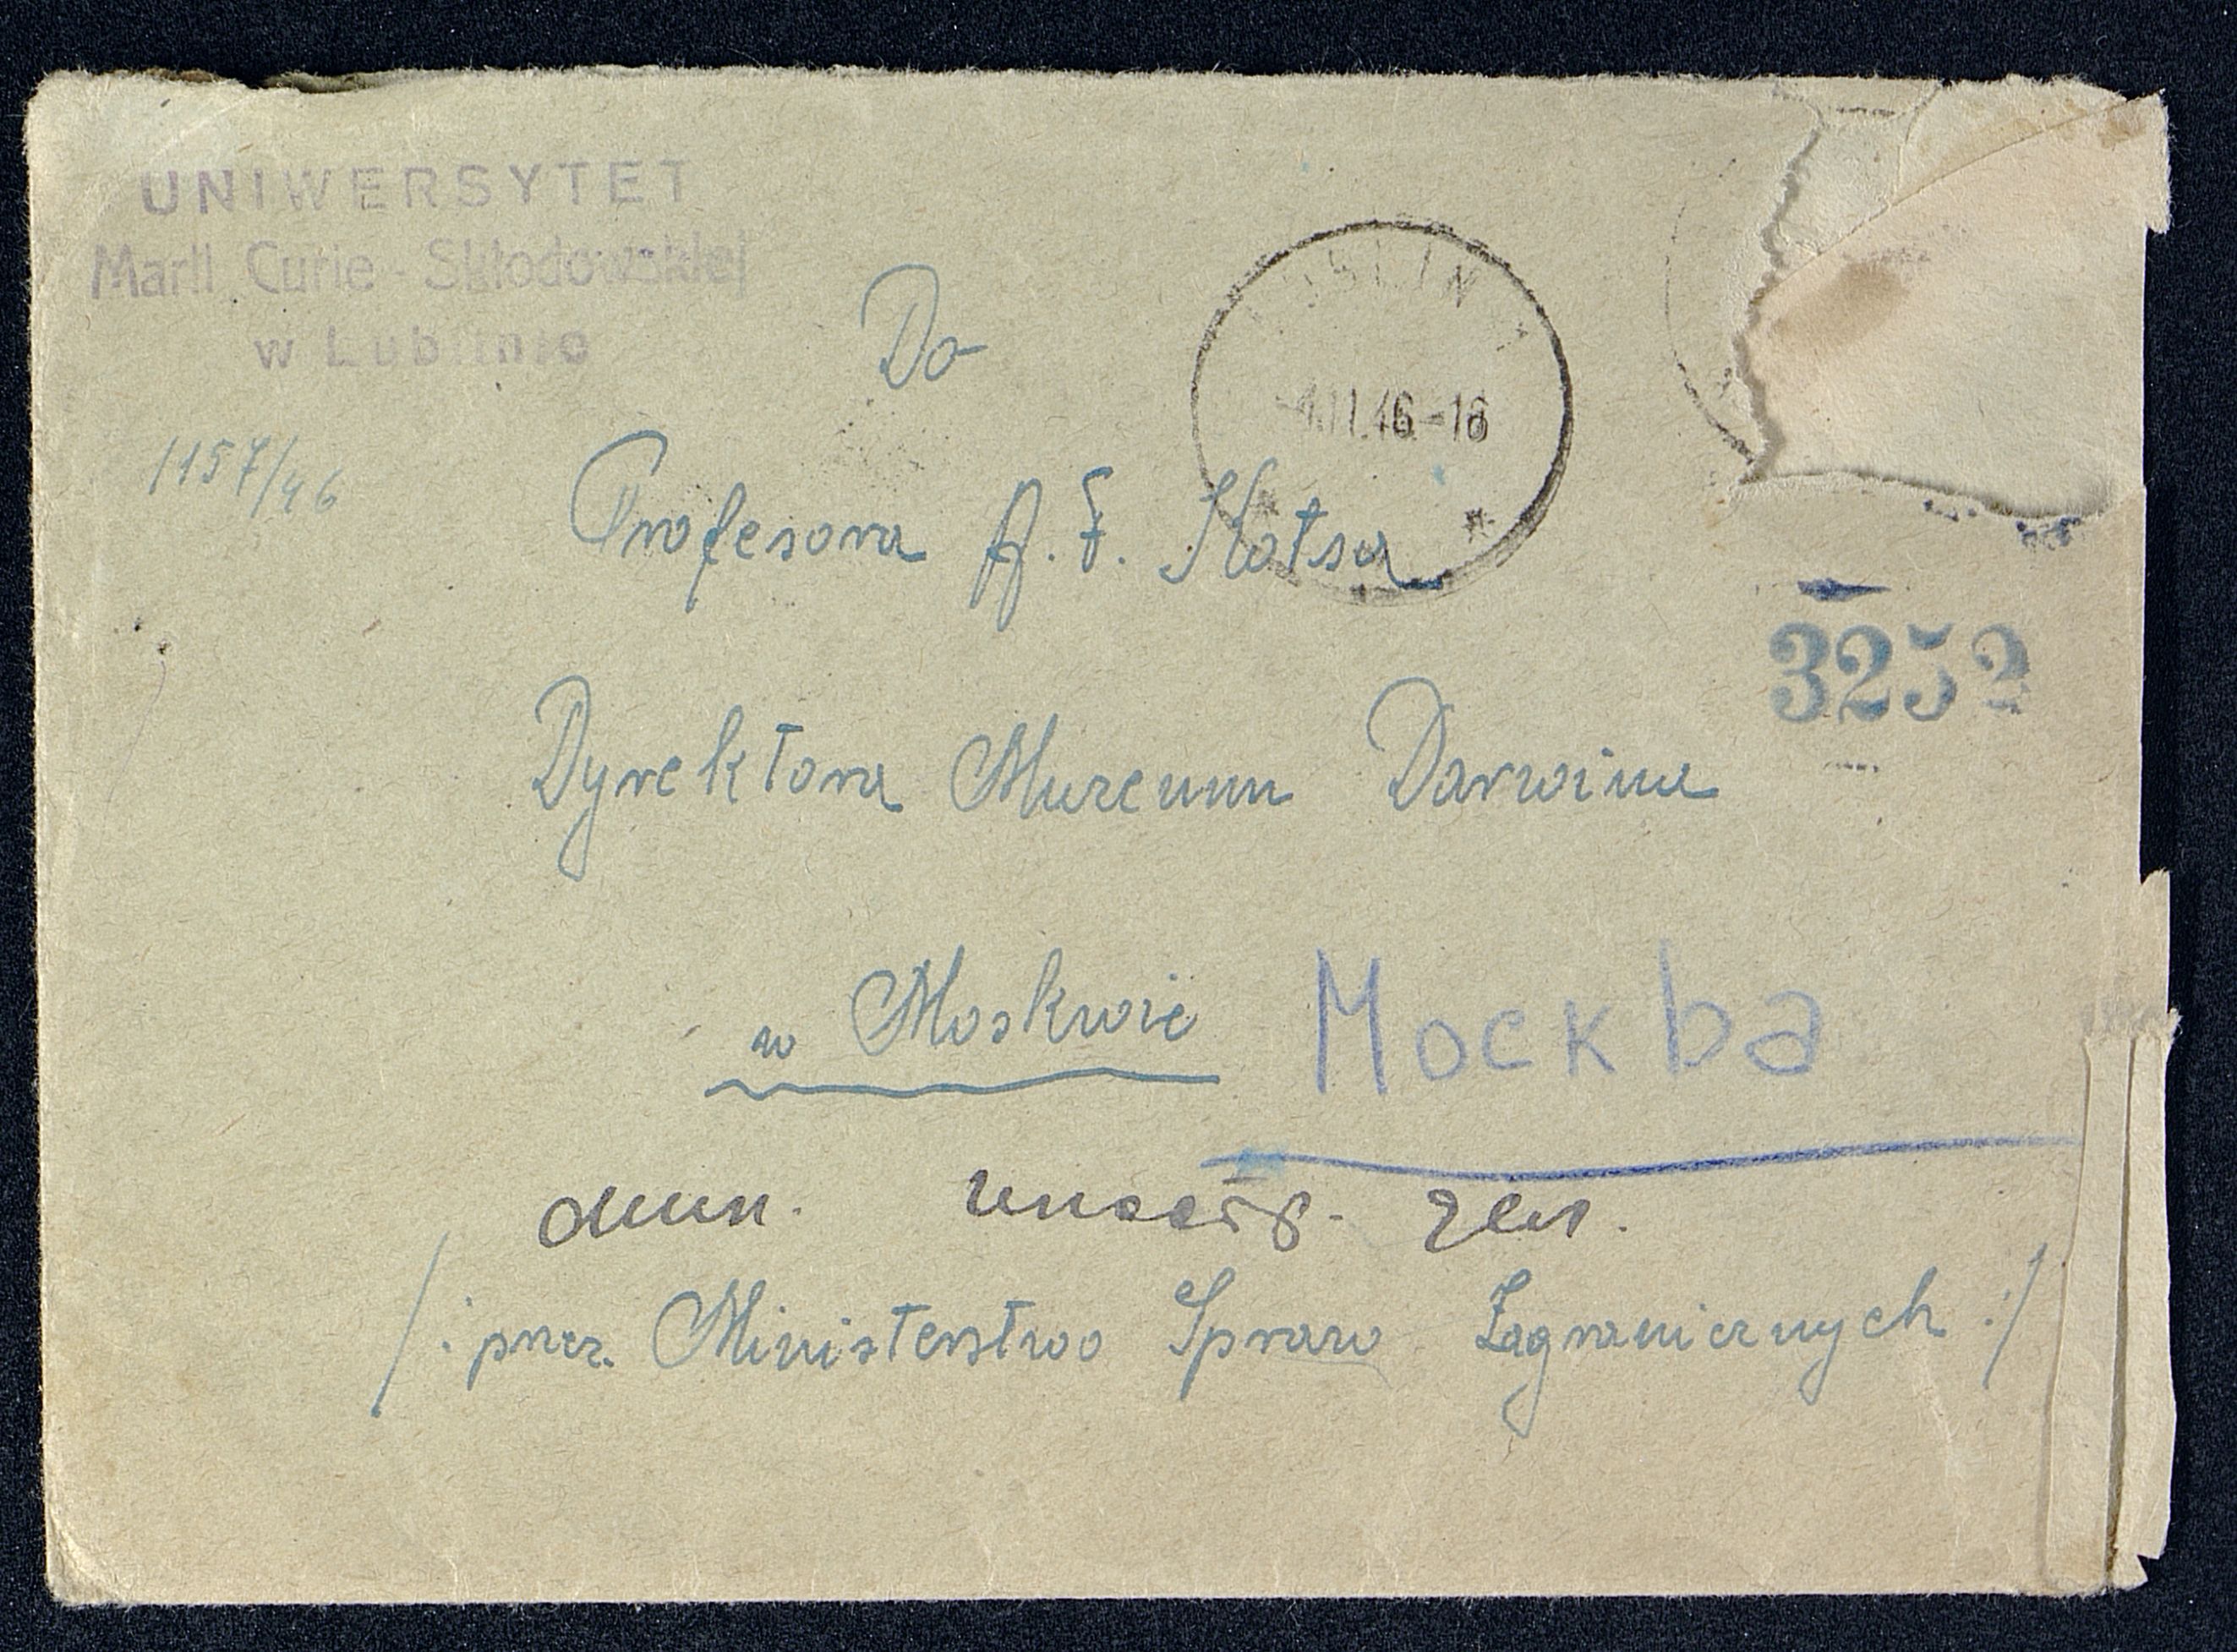 UNIWERSYTET
Marii Curie-Skłodowskiej
w Lublinie
1157/46
LUBLIN 1
Do
Profesora A. F. Kotsa
3252
Dyrektora Muzeum Darwina
w Moskwie Москва
мин. иностр. дел.
/: przez. Ministerstwo Spraw Zagranicznych :/